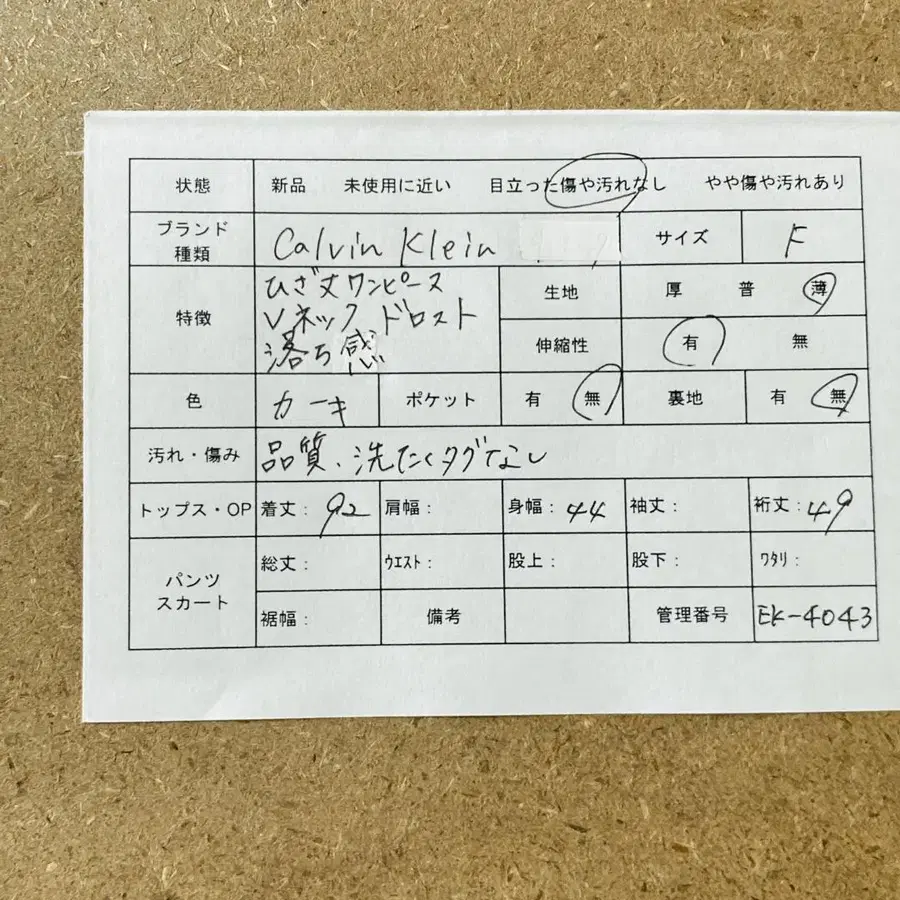 状態 新品 未使用に近い 目立った傷や汚れなし やや傷や汚れあり
ブランド種類 Calvin Klein サイズ F
特徴 ひざ丈ワンピース
Vネック ドロスト
落ち感
生地 厚 普 薄
伸縮性 有 無
色 カーキ ポケット 有 無 裏地 有 無
汚れ・傷み 品質、洗たくタグなし
トップス・OP 着丈: 92 肩幅: 身幅: 44 袖丈: 裄丈: 49
パンツ
スカート
総丈: ウエスト: 股上: 股下: ワタリ:
裾幅: 備考 管理番号 EK-4043